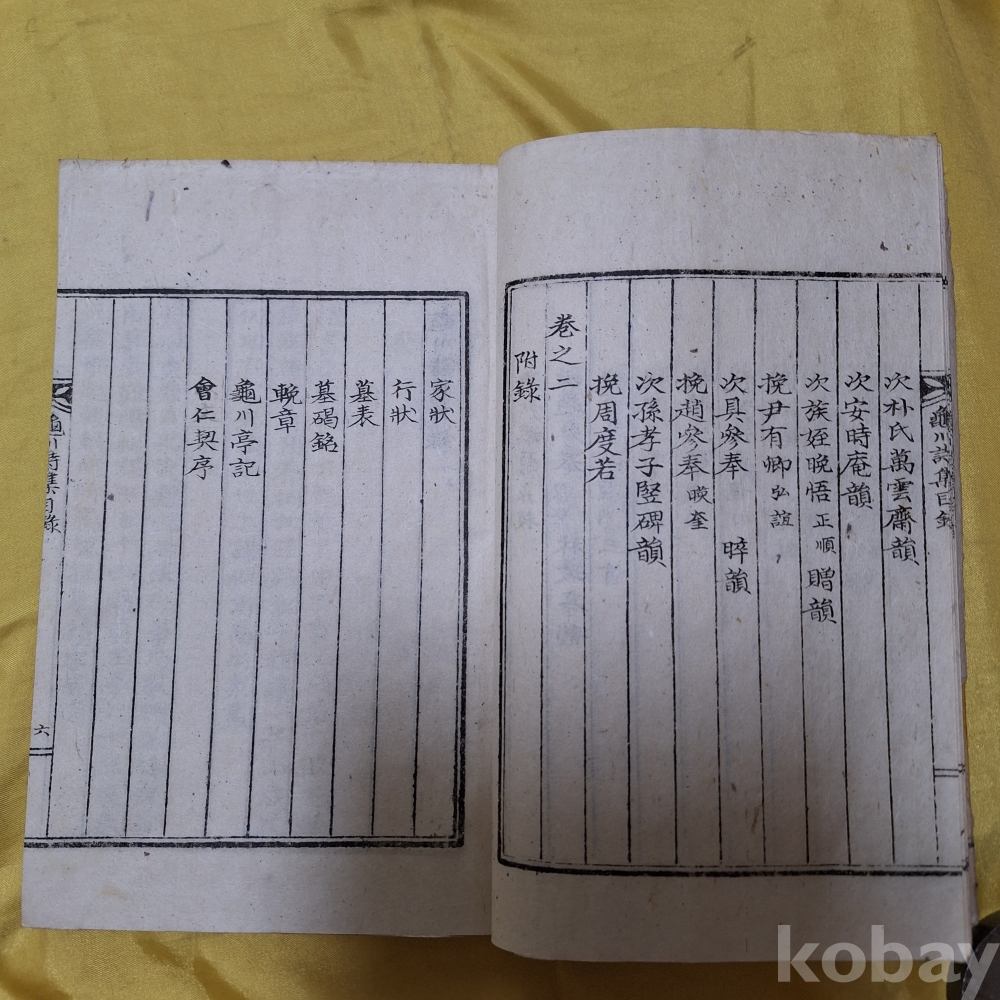 龜川詩集目錄
次朴氏萬雲齋韻
次安時庵韻
次族姪晩悟 正順 贈韻
挽尹有卿 弘誼
次具參奉 晬韻
挽趙參奉 暎奎
次孫孝子竪碑韻
挽周度若
卷之二
附錄
家狀
行狀
墓表
墓碣銘
輓章
龜川亭記
會仁契序
龜川詩集目錄
六
kobay